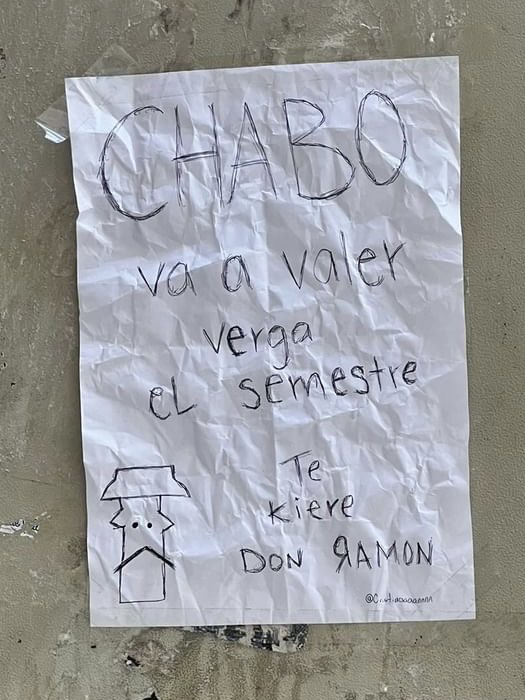 CHABO
va a valer
verga
eL semestre
Te
kiere
DON ЯAMON